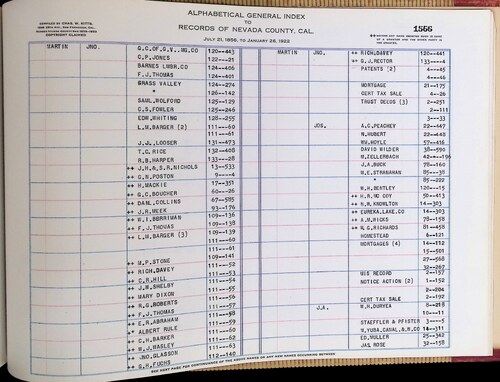 COMPILED BY CHAS. W. KITTS,
ALPHABETICAL GENERAL INDEX
TO
RECORDS OF NEVADA COUNTY, CAL.
JULY 21, 1856, TO JANUARY 26, 1922
1566
MARTIN JNO. B.C.OF G.V.MG.CO 120—443
C.P.JONES 120—21
BARNES LMBR.CO 120—406
F.J.THOMAS 124—401
BRASS VALLEY 124—274
" 126—142
SAML.WOLFORD 125—129
C.S.FOWLER 125—246
EDW.WHITING 128—255
L.M.BARGER (2) 111—60
111—61
J.J.LOOSER 131—473
T.C.RICE 132—408
R.B.HARPER 133—28
++ J.H.A.S.R.NICHOLS 13—533
++ C.N.POSTON 9——4
++ H.MACKIE 17—351
++ G.C.BOUCHER 60—26
++ DANL.COLLINS 67—585
++ J.R.MEEK 93—176
++ 109—136
++ F.J.THOMAS 109—138
++ L.M.BARGER (3) 109—139
111—60
111—61
109—141
++ W.P.STONE 111—52
++ RICH.DAVEY 111—53
++ C.R.HILL 111—54
++ J.W.SHELBY 111—55
++ MARY DIXON 111—56
++ R.G.ROBERTS 111—57
++ F.J.THOMAS 111—58
++ E.R.ABRAHAM 111—59
++ ALBERT RULE 111—60
++ C.H.BARKER 111—62
++ W.J.WASLEY 111—63
++ JNO.GLASSON 112—140
++ G.H.FUCHS
MARTIN JNO. ++ RICH.DAVEY 120—441
++ G.J.RECTOR 133——4
PATENTS (2) 4—45
4—46
MORTGAGE 21—175
CERT TAX SALE 4—26
TRUST DEEDS (3) 2—251
2—111
3——33
JOS. A.C.PEACHEY 22—447
N.HUBERT 22—448
WM.HOYLE 57—416
DAVID WILDER 38—590
M.ZELLERBACH
J.A.BUCK 78—160
M.E.STRANAHAN
" 85—222
W.H.BENTLEY 120—15
++ H.R.MC COY 50—413
++ N.W.KNOWLTON 14—303
++ EUREKA.LAKE.CO 14—303
++ A.M.RICKS 78—158
++ W.G.RICHARDS 81—458
HOMESTEAD 6—121
MORTGAGES (4) 14—112
15—501
27—568
32—267
MIS RECORD 2—157
NOTICE ACTION (2) 1—152
2—204
CERT TAX SALE 2—192
J.A. W.H.DURYEA 8—218
STAEFFLER & PFISTER 3——5
M.YUBA.CANAL.&.W.CO 14—311
ED.MULLER 25—342
JAS.ROSE 32—158
SEE NEXT PAGE FOR CONTINUATION OF THE ABOVE NAMES OR ANY NEW NAMES OCCURRING BETWEEN